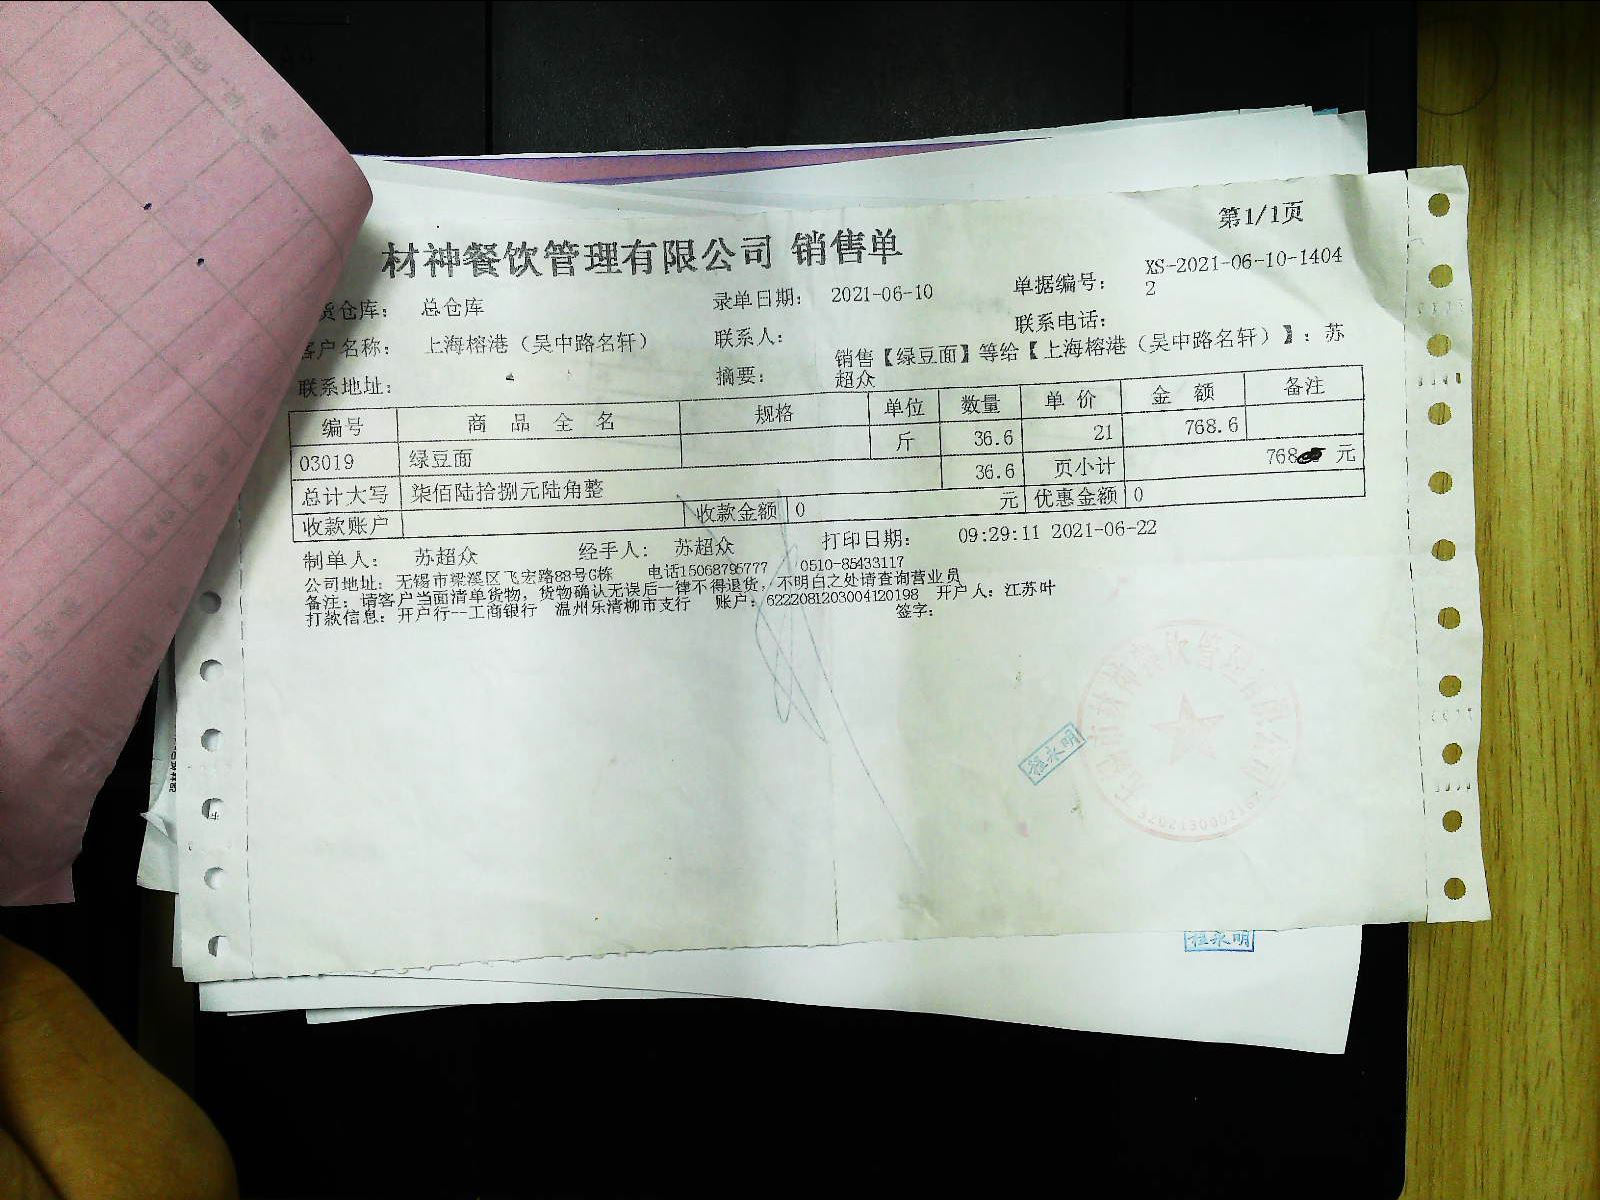 第1/1页
材神餐饮管理有限公司 销售单
货仓库： 总仓库 录单日期： 2021-06-10 单据编号： XS-2021-06-10-1404
2
客户名称： 上海榕港（吴中路名轩） 联系人： 联系电话：
联系地址： 摘要： 销售【绿豆面】等给【上海榕港（吴中路名轩）】：苏
超众
编号 商品全名 规格 单位 数量 单价 金额 备注
03019 绿豆面 斤 36.6 21 768.6
总计大写 柒佰陆拾捌元陆角整 36.6 页小计 768 元
收款账户 收款金额 0 元 优惠金额 0
制单人： 苏超众 经手人： 苏超众 打印日期： 09:29:11 2021-06-22
公司地址：无锡市梁溪区飞宏路88号G栋 电话15068795777 0510-85433117
备注：请客户当面清单货物，货物确认无误后一律不得退货，不明白之处请查询营业员
打款信息：开户行--工商银行 温州乐清柳市支行 账户：6222081203004120198 开户人：江苏叶
签字：
程永明
程永明